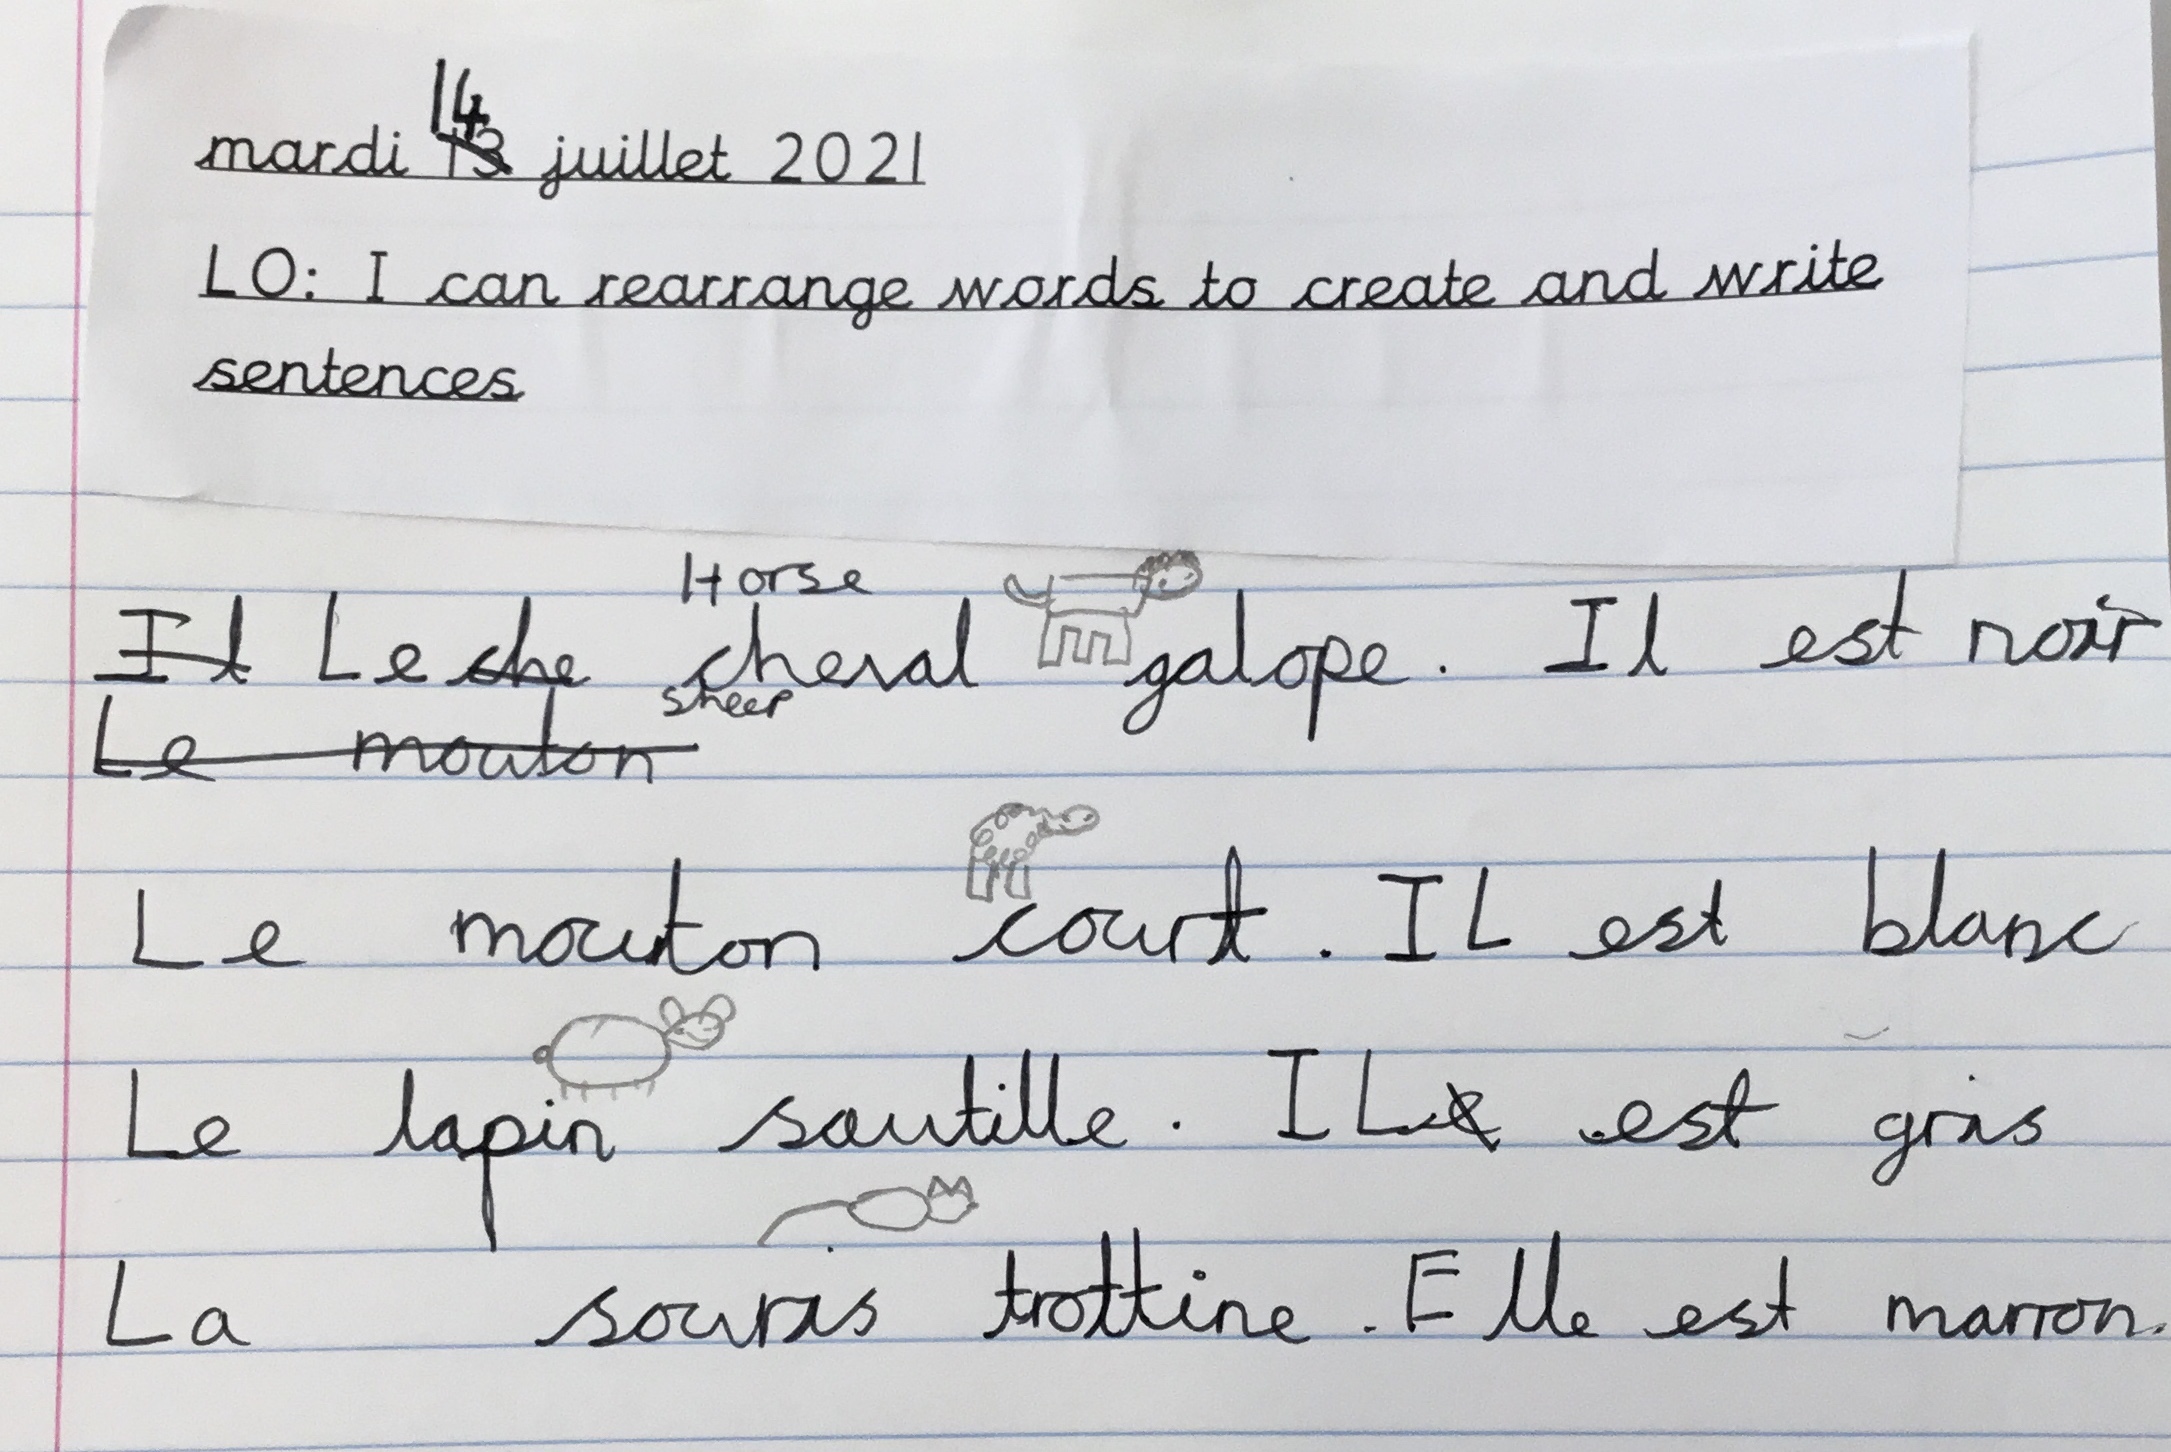 14
mardi 13 juillet 2021
LO: I can rearrange words to create and write
sentences
Horse
Il Le che cheval galope. Il est noir
sheep
Le mouton
Le mouton court. IL est blanc
Le lapin sautille. IL est gris
La souris trottine. Elle est marron.